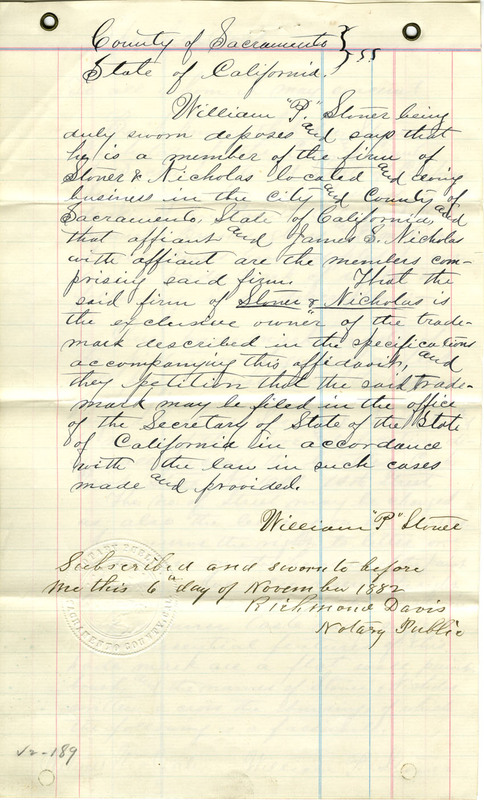 County of Sacramento } ss
State of California. }
William "P." Stoner being
duly sworn deposes and says that
he is a member of the firm of
Stoner & Nicholas located and doing
business in the city and County of
Sacramento, State of California, and
that affiant and James S. Nicholas
with affiant are the members com-
prising said firm. That the
said firm of Stoner & Nicholas is
the exclusive owner of the trade-
mark described in the specifications
accompanying this affidavit, and
they petition that the said trade-
mark may be filed in the office
of the Secretary of State of the State
of California in accordance
with the law in such cases
made and provided.
William "P" Stoner
Subscribed and sworn to before
me this 6th day of November 1882
Richmond Davis
Notary Public
NOTARY PUBLIC
SACRAMENTO COUNTY, CAL.